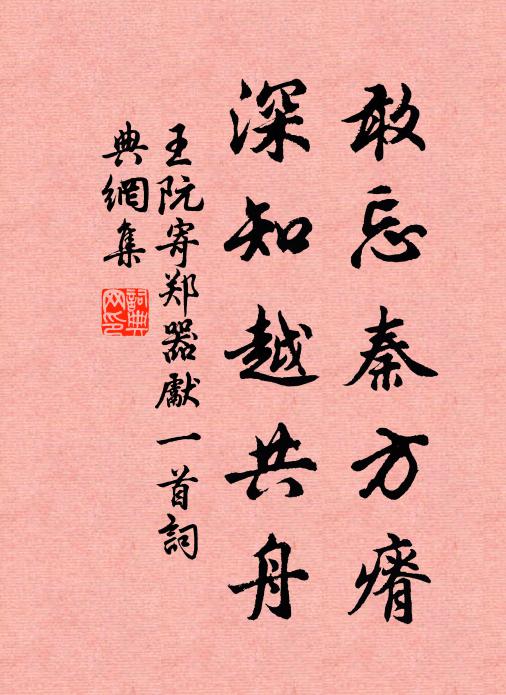 敢忘秦方瘠
深知越共舟
王阮寄郑器獻一首詞
典網集
詞典網印